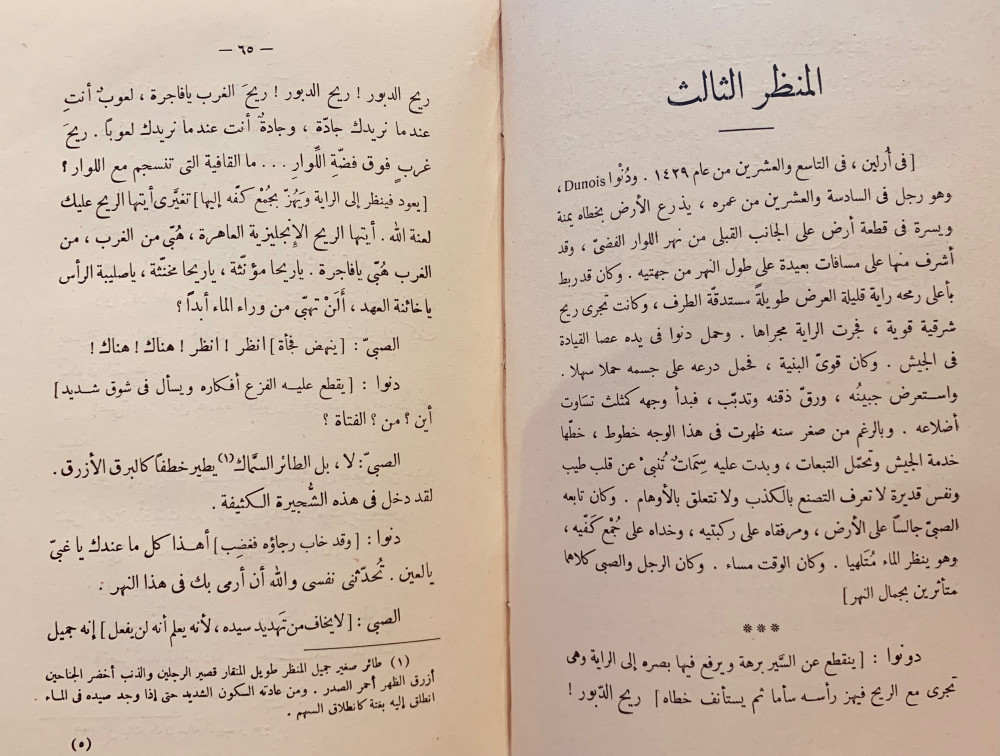 المنظر الثالث
[ فى أُرلين ، فى التاسع والعشرين من عام ١٤٢٩ . ودُنْوا Dunois ،
وهو رجل فى السادسة والعشرين من عمره ، يذرع الأرض بخطاه يمنة
ويسرة فى قطعة أرض على الجانب القبلى من نهر اللوار الفضىّ ، وقد
أشرف منها على مسافات بعيدة على طول النهر من جهتيه . وكان قد ربط
بأعلى رمحه راية قليلة العرض طويلةً مستدقّة الطرف ، وكانت تجرى ريح
شرقية قوية ، فجرت الراية مجراها . وحمل دنوا فى يده عصا القيادة
فى الجيش . وكان قوىّ البنية ، فحمل درعه على جسمه حملا سهلا .
واستعرض جبينُه ، ورقّ ذقنه وتدبّب ، فبدأ وجهه كمثلث تساوت
أضلاعه . وبالرغم من صغر سنه ظهرت فى هذا الوجه خطوط ، خطّها
خدمة الجيش وتحتمّل التبعات ، وبدت عليه سِمَاتٌ تُنبىْ عن قلب طيب
ونفس قديرة لا تعرف التصنع بالكذب ولا تتعلق بالأوهام . وكان تابعه
الصبىّ جالساً على الأرض ، ومرفقاه على ركبتيه ، وخداه على جُمْع كَفّيه ،
وهو ينظر للماء مُتَلهيا . وكان الوقت مساء . وكان الرجل والصبى كلاهما
متأثرين بجمال النهر ]
***
دونوا : [ ينقطع عن السَّير برهة ويرفع فيها بصره إلى الراية وهى
تجرى مع الريح فيهز رأسه سأما ثم يستأنف خطاه ] ريح الدّبور !
— ٦٥ —
ريح الدبور ! ريح الدبور ! ريحَ الغرب يا فاجرة ، لعوبٌ أنتِ
عندما نريدك جادّة ، وجادةٌ أنت عندما نريدك لعوبًا . ريحَ
غربٍ فوق فضّةِ اللِّوارِ . . . ما القافية التى تنسجم مع اللوار ؟
[ يعود فينظر إلى الراية ويَهُزّ بجُمْع كفّه إليها ] تغيَّرى أيتها الريح عليك
لعنة الله . أيتها الريح الإنجليزية العاهرة ، هُبّى من الغرب ، من
الغرب هُبّى يا فاجرة . يا ريحا مؤنّثة ، يا ريحا مخنّثة ، يا صليبة الرأس
يا خائنة العهد ، ألَنْ تهبّى من وراء الماء أبداً ؟
الصبىّ : [ ينهض فجأة ] انظر ! انظر ! هناك ! هناك !
دنوا : [ يقطع عليه الفزع أفكاره ويسأل فى شوق شديد ]
أين ؟ من ؟ الفتاة ؟
الصبىّ : لا ، بل الطائر السمَّاك (١) يطير خطفاً كالبرق الأزرق .
لقد دخل فى هذه الشُّجيرة الكثيفة .
دنوا : [ وقد خاب رجاؤه فغضب ] أهذا كل ما عندك يا غبىّ
يالعين . تُحدّثنى نفسى والله أن أرمى بك فى هذا النهر .
الصبى : [ لا يخاف من تَهديد سيده ، لأنه يعلم أنه لن يفعل ] إنه جميل
(١) طائر صغير جميل المنظر طويل المنقار قصير الرجلين والذنب أخضر الجناحين
أزرق الظهر أحمر الصدر . ومن عادته السكون الشديد حتى إذا وجد صيده فى الماء
انطلق إليه بغتة كانطلاق السهم .
(٥)